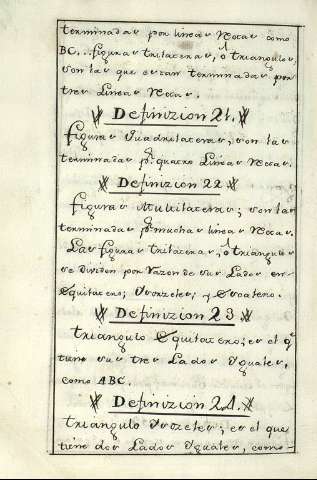 terminadas por lineas rectas como
BC... figuras trilateras, ó triangulos;
son las que estan terminadas por
tres Lineas Rectas.
Definizion 21.
figuras Quadrilateras, son las
terminadas pr. quatro Lineas Rectas.
Definizion 22
figuras Multilateras; son las
terminadas pr. muchas lineas Rectas.
Las figuras trilateras, ó triangulos
se dividen por Razon de sus Lados en
Equilatero; Isozeles; y Escaleno.
Definizion 23.
triangulo Equilatero; es el qe
tiene sus tres Lados Iguales,
como ABC.
Definizion 24.
triangulo Isozeles; es el que
tiene dos Lados Iguales, como